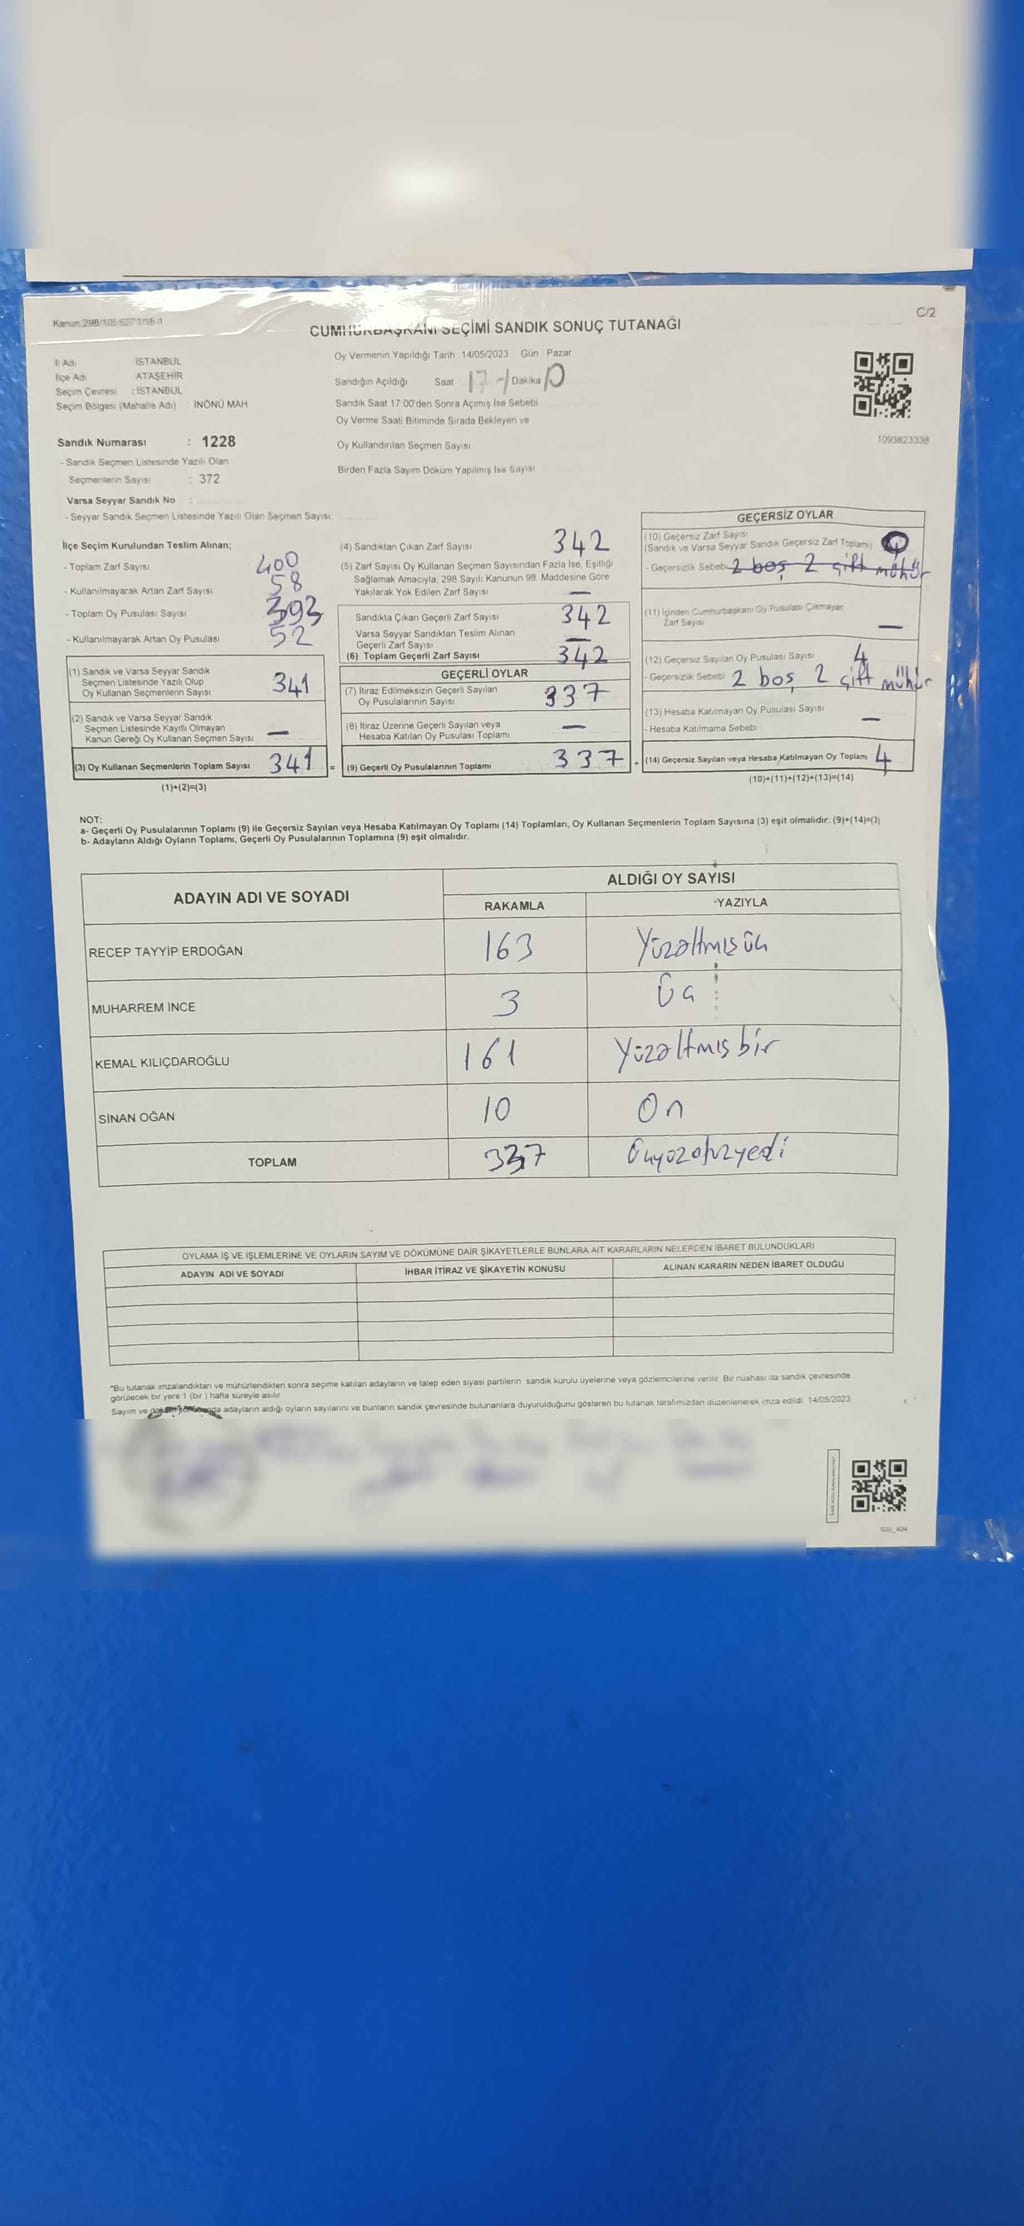 C/2
CUMHURBAŞKANI SEÇİMİ SANDIK SONUÇ TUTANAĞI
İl Adı : İSTANBUL
İlçe Adı : ATAŞEHİR
Seçim Çevresi : İSTANBUL
Seçim Bölgesi (Mahalle Adı) : İNÖNÜ MAH
Sandık Numarası : 1228
- Sandık Seçmen Listesinde Yazılı Olan
Seçmenlerin Sayısı : 372
Varsa Seyyar Sandık No :
- Seyyar Sandık Seçmen Listesinde Yazılı Olan Seçmen Sayısı
Oy Vermenin Yapıldığı Tarih : 14/05/2023 Gün Pazar
Sandığın Açıldığı Saat 17 Dakika
Sandık Saat 17:00'den Sonra Açımış İse Sebebi
Oy Verme Saati Bitiminde Sırada Bekleyen ve
Oy Kullandırılan Seçmen Sayısı
Birden Fazla Sayım Döküm Yapılmış İse Sayısı
1093823338
İlçe Seçim Kurulundan Teslim Alınan;
- Toplam Zarf Sayısı 400
- Kullanılmayarak Artan Zarf Sayısı 58
- Toplam Oy Pusulası Sayısı 393
- Kullanılmayarak Artan Oy Pusulası 52
(1) Sandık ve Varsa Seyyar Sandık
Seçmen Listesinde Yazılı Olup
Oy Kullanan Seçmenlerin Sayısı 341
(2) Sandık ve Varsa Seyyar Sandık
Seçmen Listesinde Kayıtlı Olmayan
Kanun Gereği Oy Kullanan Seçmen Sayısı —
(3) Oy Kullanan Seçmenlerin Toplam Sayısı 341 =
(1)+(2)=(3)
(4) Sandıktan Çıkan Zarf Sayısı 342
(5) Zarf Sayısı Oy Kullanan Seçmen Sayısından Fazla İse, Eşitliği
Sağlamak Amacıyla, 298 Sayılı Kanunun 98. Maddesine Göre
Yakılarak Yok Edilen Zarf Sayısı —
Sandıkta Çıkan Geçerli Zarf Sayısı 342
Varsa Seyyar Sandıktan Teslim Alınan
Geçerli Zarf Sayısı —
(6) Toplam Geçerli Zarf Sayısı 342
GEÇERLİ OYLAR
(7) İtiraz Edilmeksizin Geçerli Sayılan
Oy Pusulalarının Sayısı 337
(8) İtiraz Üzerine Geçerli Sayılan veya
Hesaba Katılan Oy Pusulası Toplamı —
(9) Geçerli Oy Pusulalarının Toplamı 337
GEÇERSİZ OYLAR
(10) Geçersiz Zarf Sayısı
(Sandık ve Varsa Seyyar Sandık Geçersiz Zarf Toplamı)
- Geçersizlik Sebebi 2 boş 2 çift mühür
(11) İçinden Cumhurbaşkanı Oy Pusulası Çıkmayan
Zarf Sayısı —
(12) Geçersiz Sayılan Oy Pusulası Sayısı 4
- Geçersizlik Sebebi 2 boş, 2 çift mühür
(13) Hesaba Katılmayan Oy Pusulası Sayısı —
- Hesaba Katılmama Sebebi
(14) Geçersiz Sayılan veya Hesaba Katılmayan Oy Toplam 4
(10)+(11)+(12)+(13)=(14)
NOT:
a- Geçerli Oy Pusulalarının Toplamı (9) ile Geçersiz Sayılan veya Hesaba Katılmayan Oy Toplamı (14) Toplamları, Oy Kullanan Seçmenlerin Toplam Sayısına (3) eşit olmalıdır. (9)+(14)=(3)
b- Adayların Aldığı Oyların Toplamı, Geçerli Oy Pusulalarının Toplamına (9) eşit olmalıdır.
ADAYIN ADI VE SOYADI ALDIĞI OY SAYISI
RAKAMLA YAZIYLA
RECEP TAYYİP ERDOĞAN 163 Yüzaltmışüç
MUHARREM İNCE 3 Üç
KEMAL KILIÇDAROĞLU 161 Yüzaltmışbir
SİNAN OĞAN 10 On
TOPLAM 337 Üçyüzotuzyedi
OYLAMA İŞ VE İŞLEMLERİNE VE OYLARIN SAYIM VE DÖKÜMÜNE DAİR ŞİKAYETLERLE BUNLARA AİT KARARLARIN NELERDEN İBARET BULUNDUKLARI
ADAYIN ADI VE SOYADI İHBAR İTİRAZ VE ŞİKAYETİN KONUSU ALINAN KARARIN NEDEN İBARET OLDUĞU
*Bu tutanak imzalandıktan ve mühürlendikten sonra seçime katılan adayların ve talep eden siyasi partilerin sandık kurulu üyelerine veya gözlemcilerine verilir. Bir nüshası da sandık çevresinde
görülecek bir yere 1 (bir) hafta süreyle asılır
Sayım ve adayların aldığı oyların sayılarını ve bunların sandık çevresinde bulunanlara duyurulduğunu gösteren bu tutanak tarafımızdan düzenlenerek imza edildi. 14/05/2023